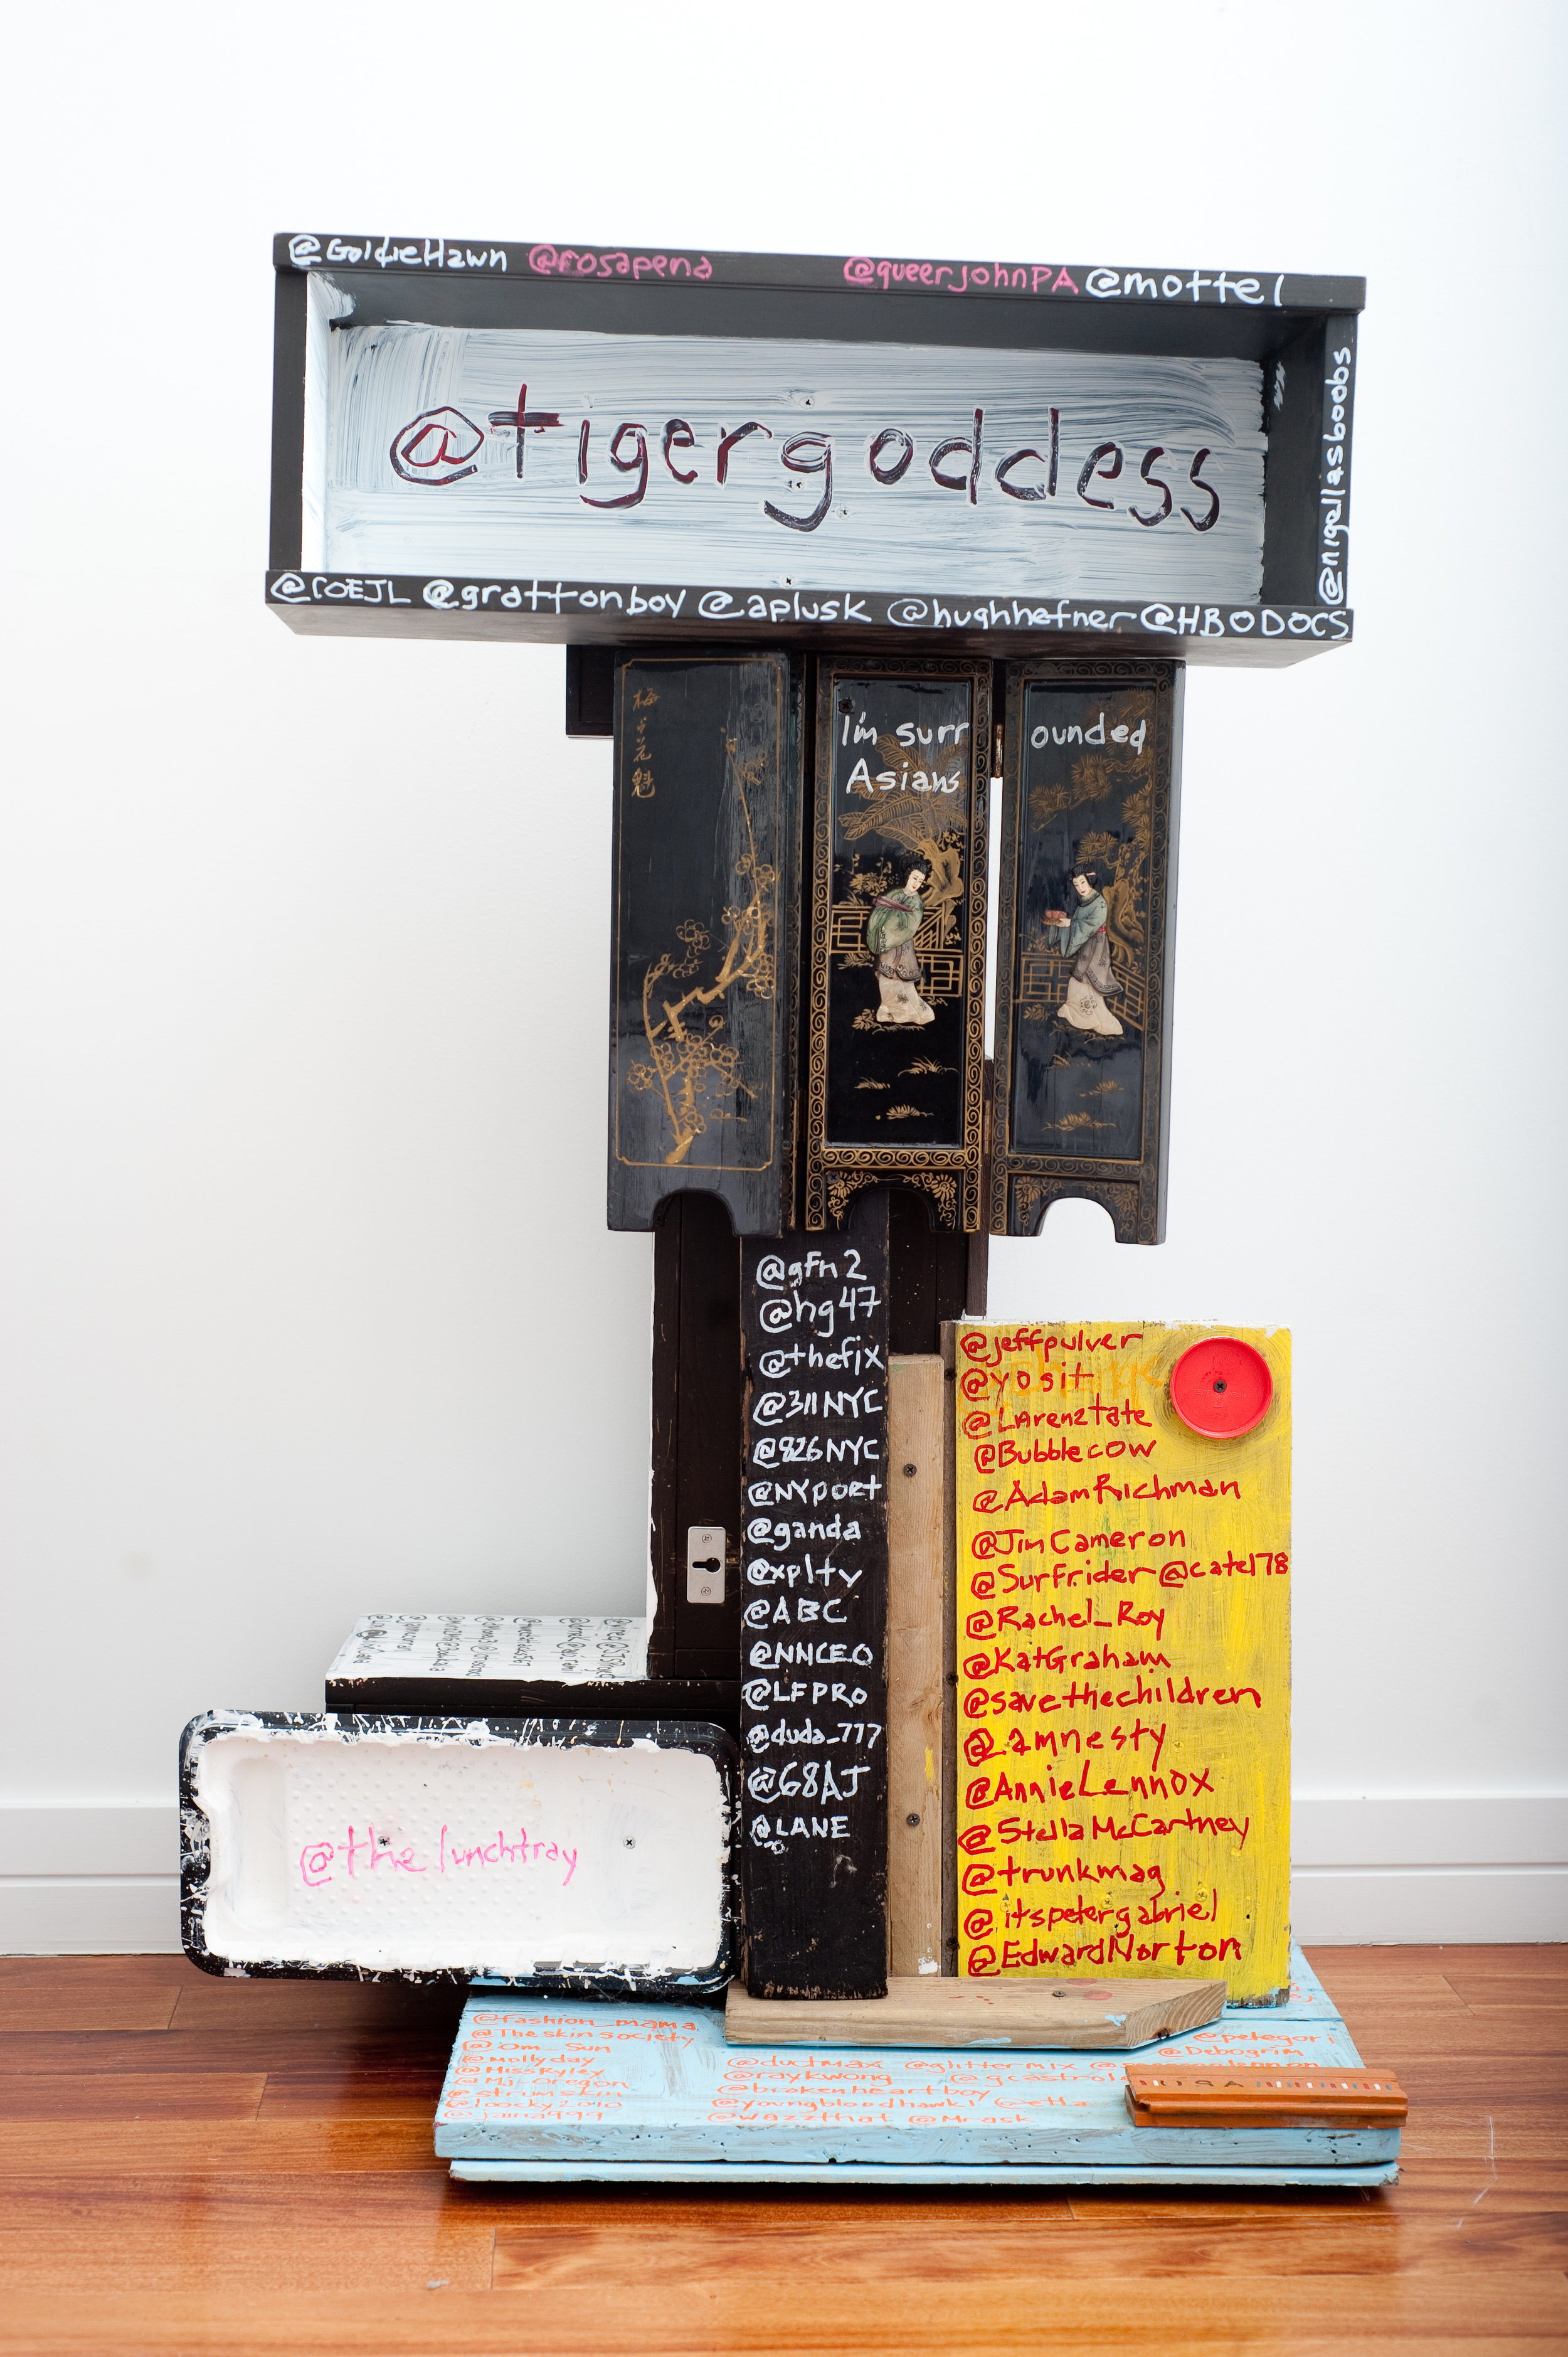 @GoldieHawn @rosapena @queerjohnPA @mottel
@tigergoddess
@nigellasboobs
@COEJL @grattonboy @aplusk @hughhefner @HBODOCS
梅占花魁
I'm surr ounded
Asians
@gfn2
@hg47
@thefix
@311NYC
@826NYC
@NYpoet
@ganda
@xplty
@ABC
@NNCEO
@LFPRO
@duda_777
@68AJ
@LANE
@jeffpulver
@yosit
@LArenztate
@Bubblecow
@AdamRichman
@JimCameron
@Surfrider @cate178
@Rachel_Roy
@KatGraham
@savethechildren
@amnesty
@AnnieLennox
@StellaMcCartney
@trunkmag
@itspetergabriel
@EdwardNorton
@thelunchtray
@fashion_mama
@Theskinsociety
@om_sun
@mollyday
@MissRyley
@MJ_Oregon
@strumskin
@loocky2010
@jaina999
@dudmax @glittermix
@raykwong
@brokenheartboy
@youngbloodhawk1 @etta
@wazzthat @Mrask
@petegori
@Debogrim
USA